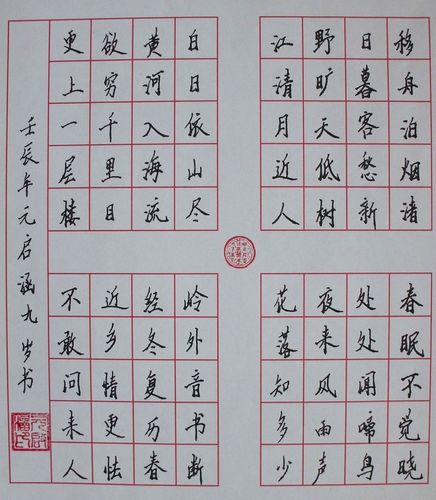 移舟泊烟渚
日暮客愁新
野旷天低树
江清月近人
春眠不觉晓
处处闻啼鸟
夜来风雨声
花落知多少
白日依山尽
黄河入海流
欲穷千里目
更上一层楼
岭外音书断
经冬复历春
近乡情更怯
不敢问来人
壬辰年元启涵九岁书